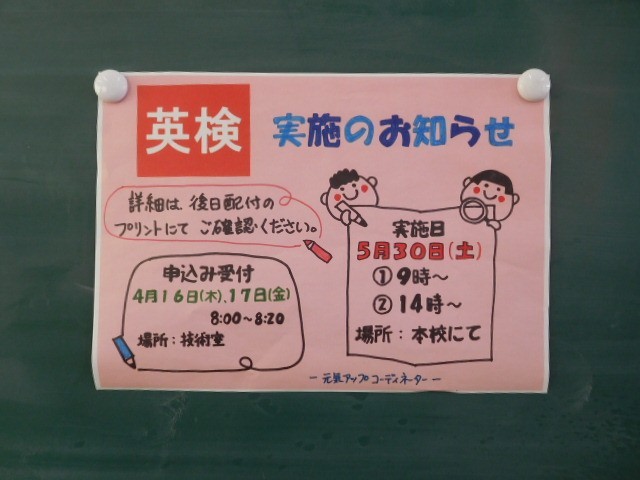 英検
実施のお知らせ
詳細は、後日配付の
プリントにて ご確認ください。
申込み受付
4月16日(木)、17日(金)
8:00～8:20
場所：技術室
実施日
5月30日(土)
①9時～
②14時～
場所：本校にて
－元気アップコーディネーター－